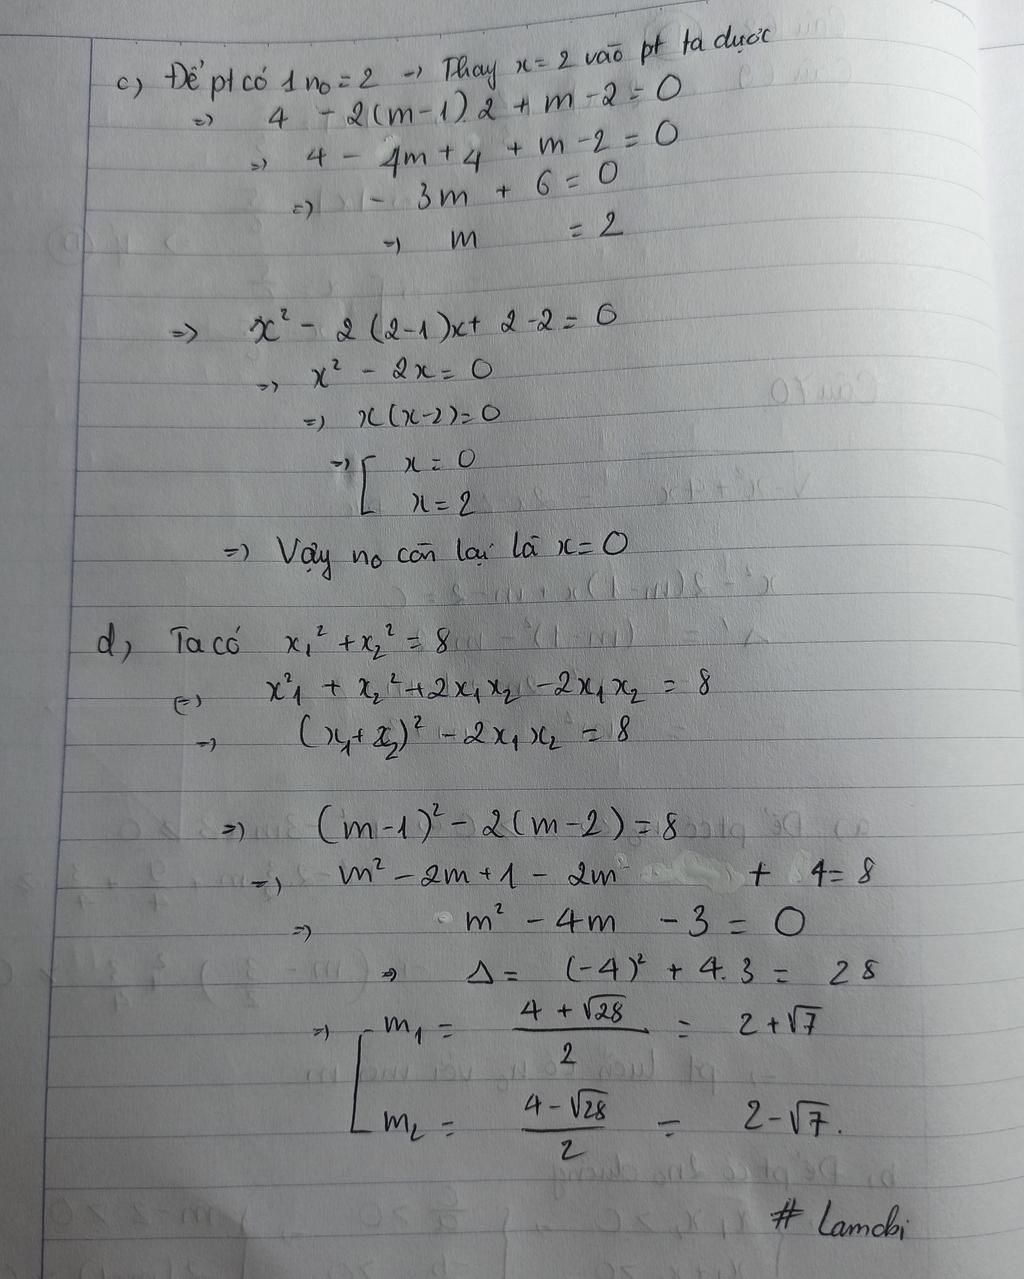 c) Để pt có 1 no = 2 => Thay x = 2 vào pt ta được
=> 4 - 2(m-1).2 + m - 2 = 0
=> 4 - 4m + 4 + m - 2 = 0
=> - 3m + 6 = 0
=> m = 2
=> x² - 2(2-1)x + 2 - 2 = 0
=> x² - 2x = 0
=> x(x-2) = 0
=> [ x = 0
x = 2
=> Vậy no còn lại là x = 0
d, Ta có x₁² + x₂² = 8
(=) x²₁ + x₂² + 2x₁x₂ - 2x₁x₂ = 8
=> (x₁ + x₂)² - 2x₁x₂ = 8
=> (m-1)² - 2(m-2) = 8
=> m² - 2m + 1 - 2m + 4 = 8
=> m² - 4m - 3 = 0
=> Δ = (-4)² + 4.3 = 28
=> [ m₁ = (4 + √28)/2 = 2 + √7
m₂ = (4 - √28)/2 = 2 - √7.
# Lamcbi